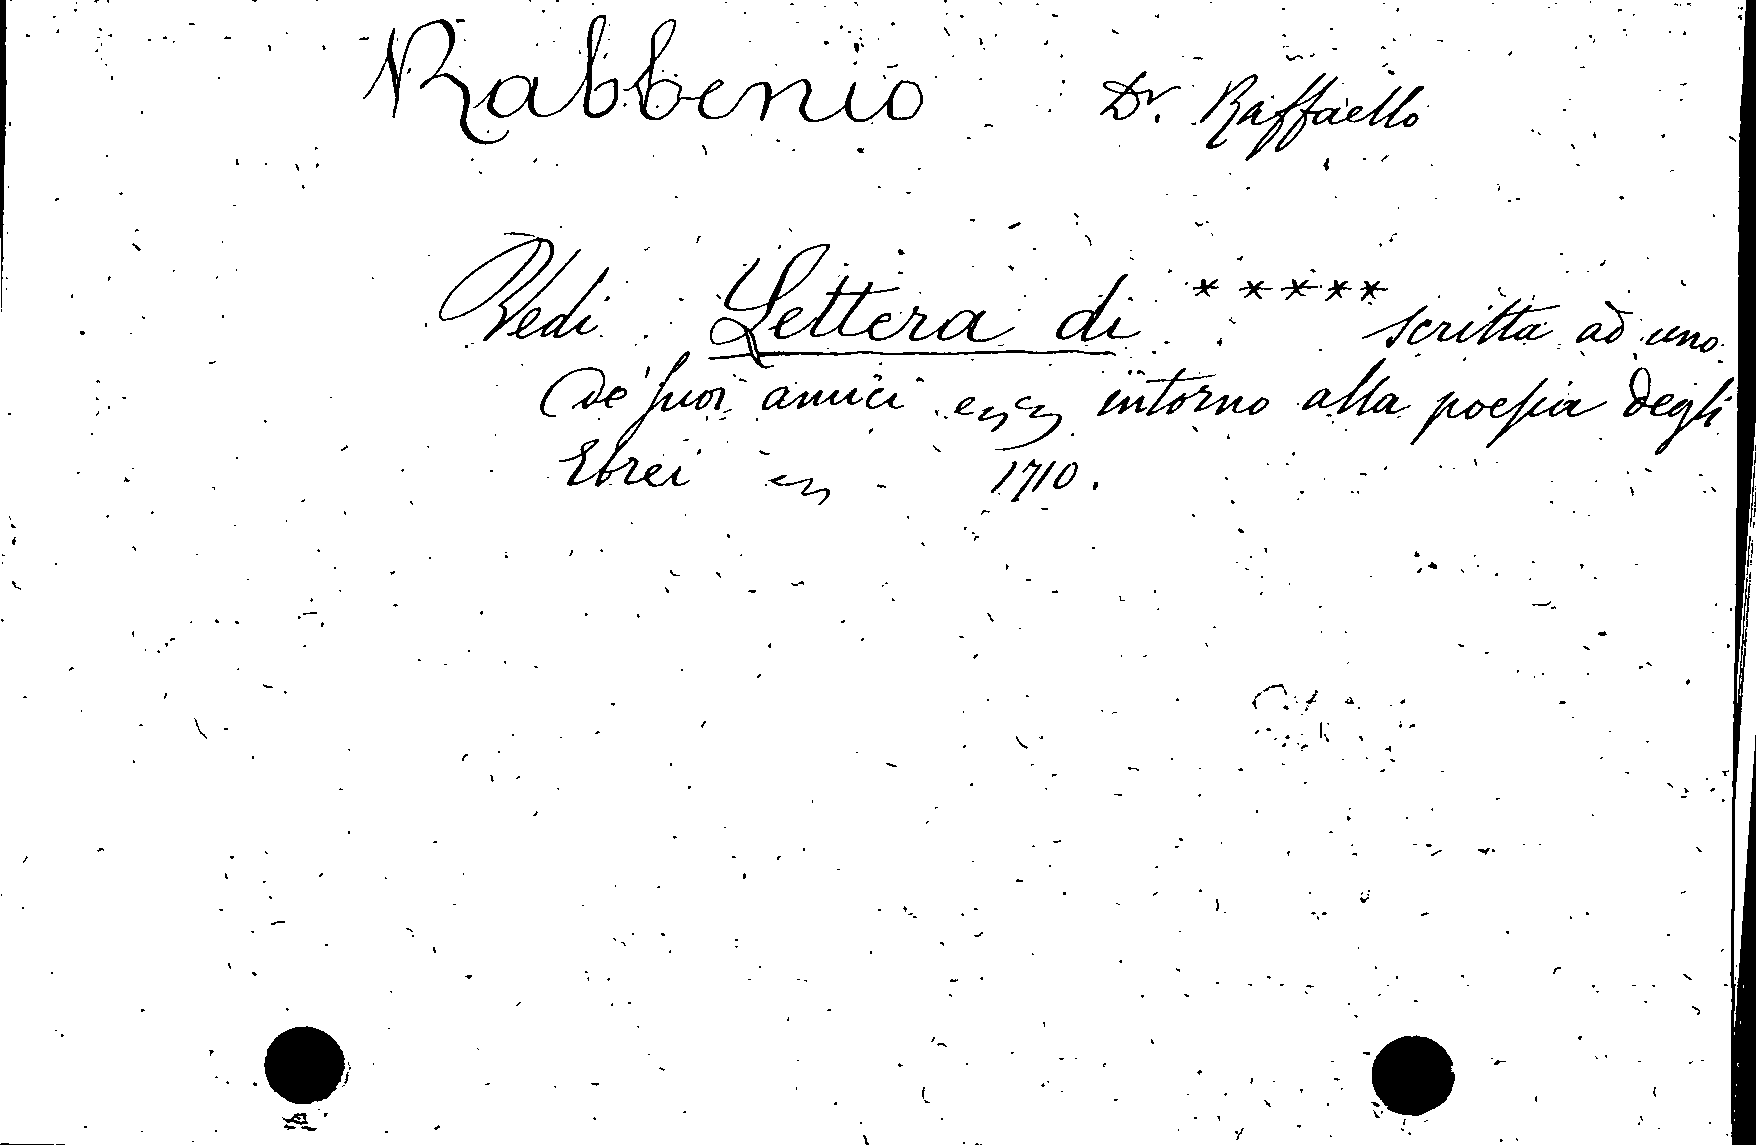 Rabbenio Dr. Raffaello
Vedi Lettera di ***** scritta ad uno
de' suoi amici intorno alla poesia degli
Ebrei 1710.